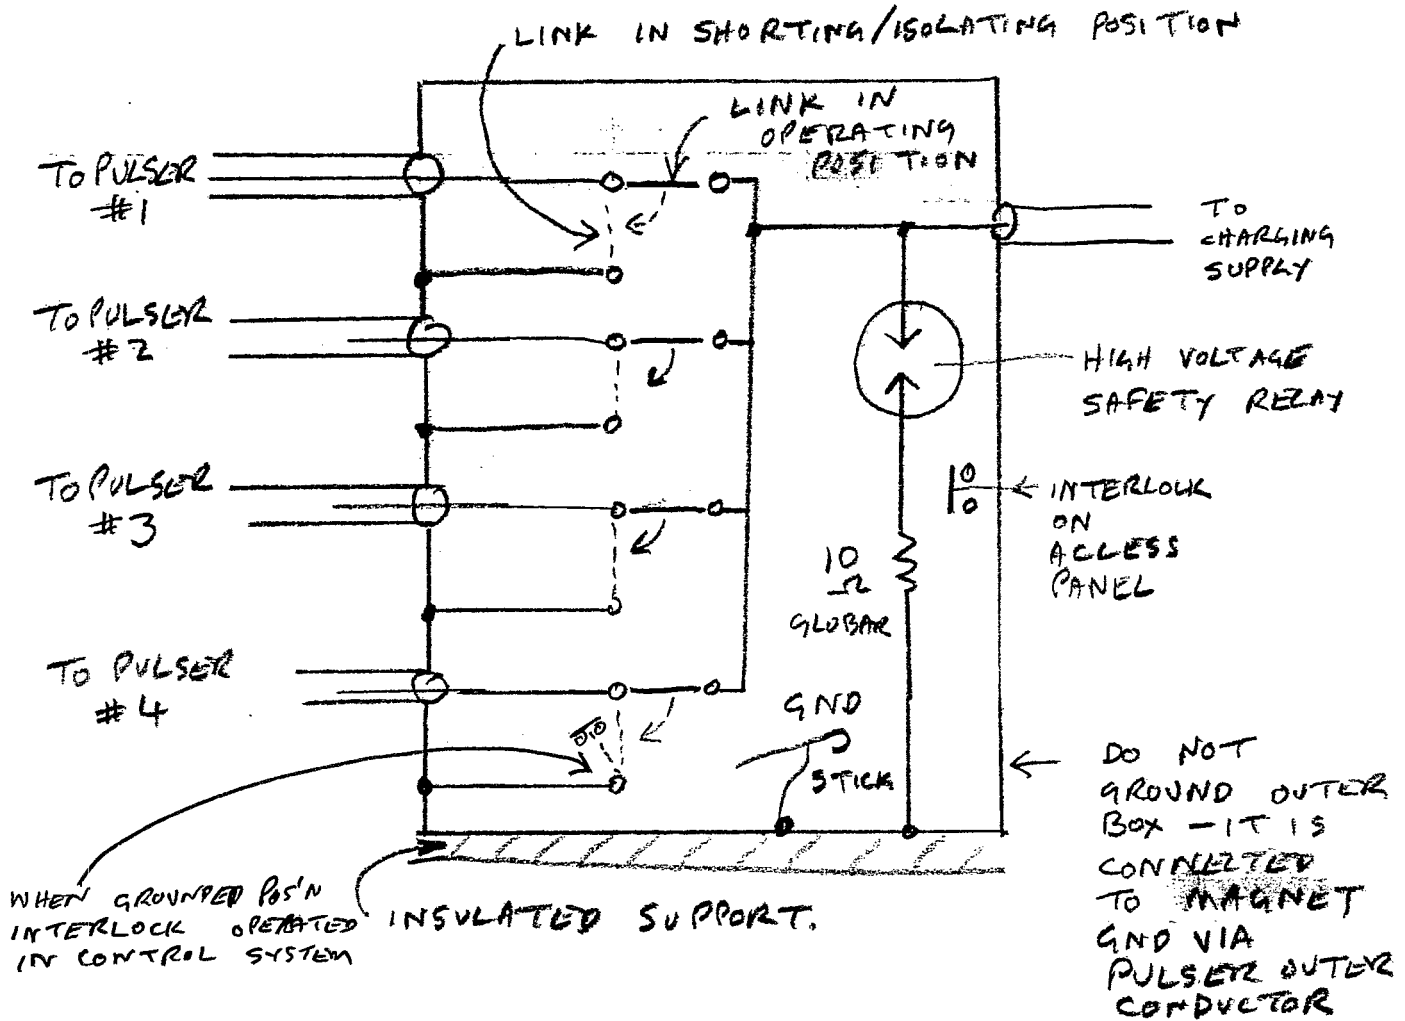 LINK IN SHORTING/ISOLATING POSITION
LINK IN
OPERATING
POSITION
TO PULSER
#1
TO
CHARGING
SUPPLY
TO PULSER
#2
HIGH VOLTAGE
SAFETY RELAY
TO PULSER
#3
INTERLOCK
ON
ACCESS
PANEL
10
Ω
GLOBAR
TO PULSER
#4
GND
STICK
DO NOT
GROUND OUTER
BOX - IT IS
CONNECTED
TO MAGNET
GND VIA
PULSER OUTER
CONDUCTOR
WHEN GROUNDED POS'N
INTERLOCK OPERATED
IN CONTROL SYSTEM
INSULATED SUPPORT.